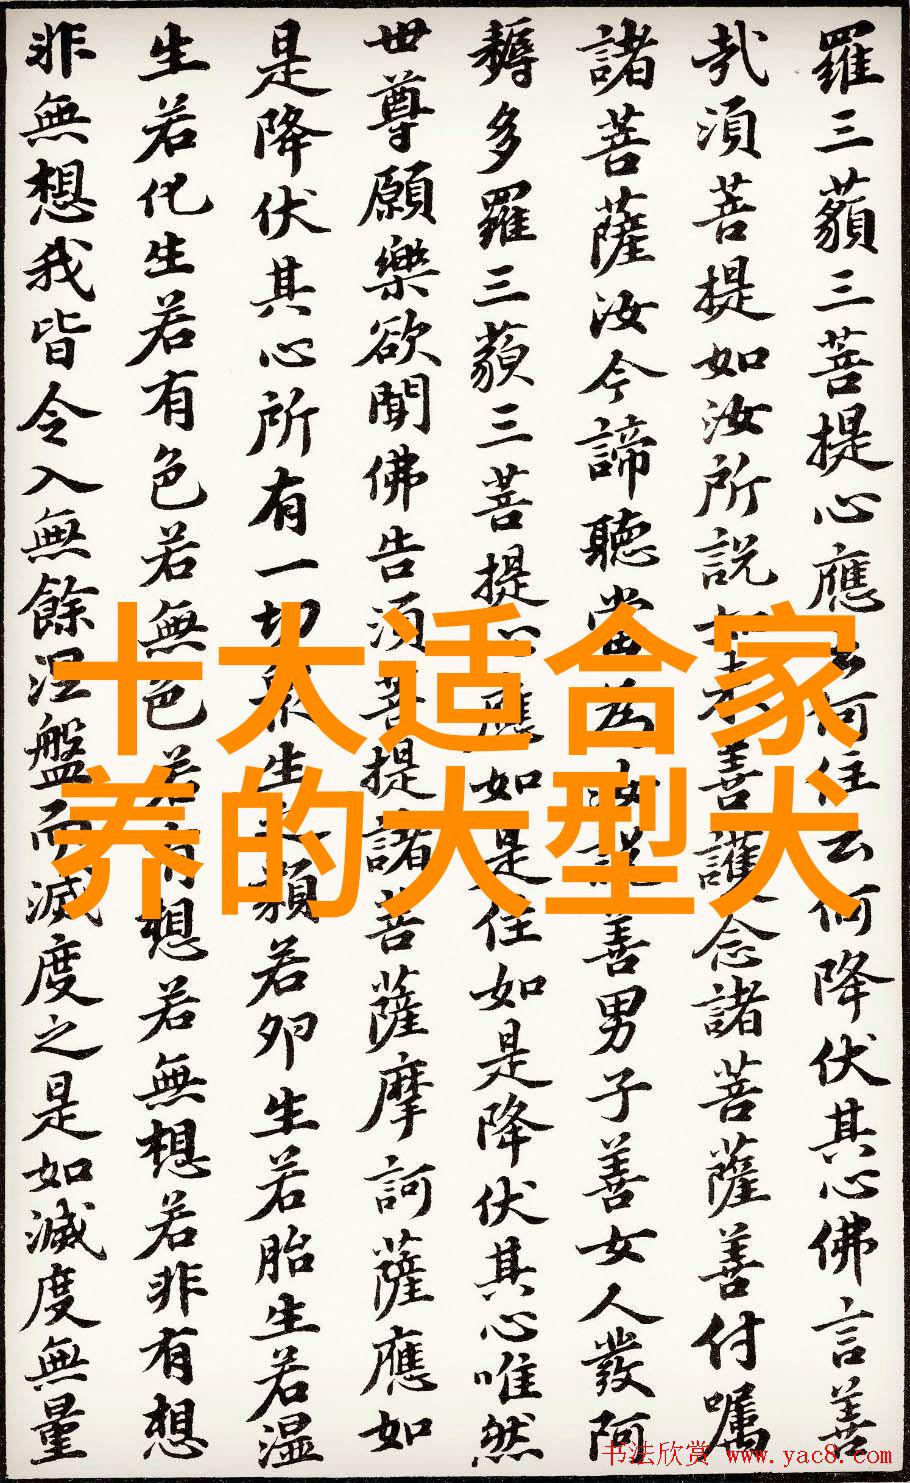 羅三藐三菩提心應云何住云何降伏其心佛言善
哉須菩提如汝所説如来善護念諸菩薩善付囑
諸菩薩汝今諦聽當為汝説善男子善女人發阿
耨多羅三藐三菩提心應如是住如是降伏其心唯然
世尊願樂欲聞佛告須菩提諸菩薩摩訶薩應如
是降伏其心所有一切衆生之類若卵生若胎生若湿
生若化生若有色若無色若有想若無想若非有想
非無想我皆令入無餘涅盤而滅度之是如滅度無量
十大适合家
养的大型犬
书法欣赏 www.yac8.com